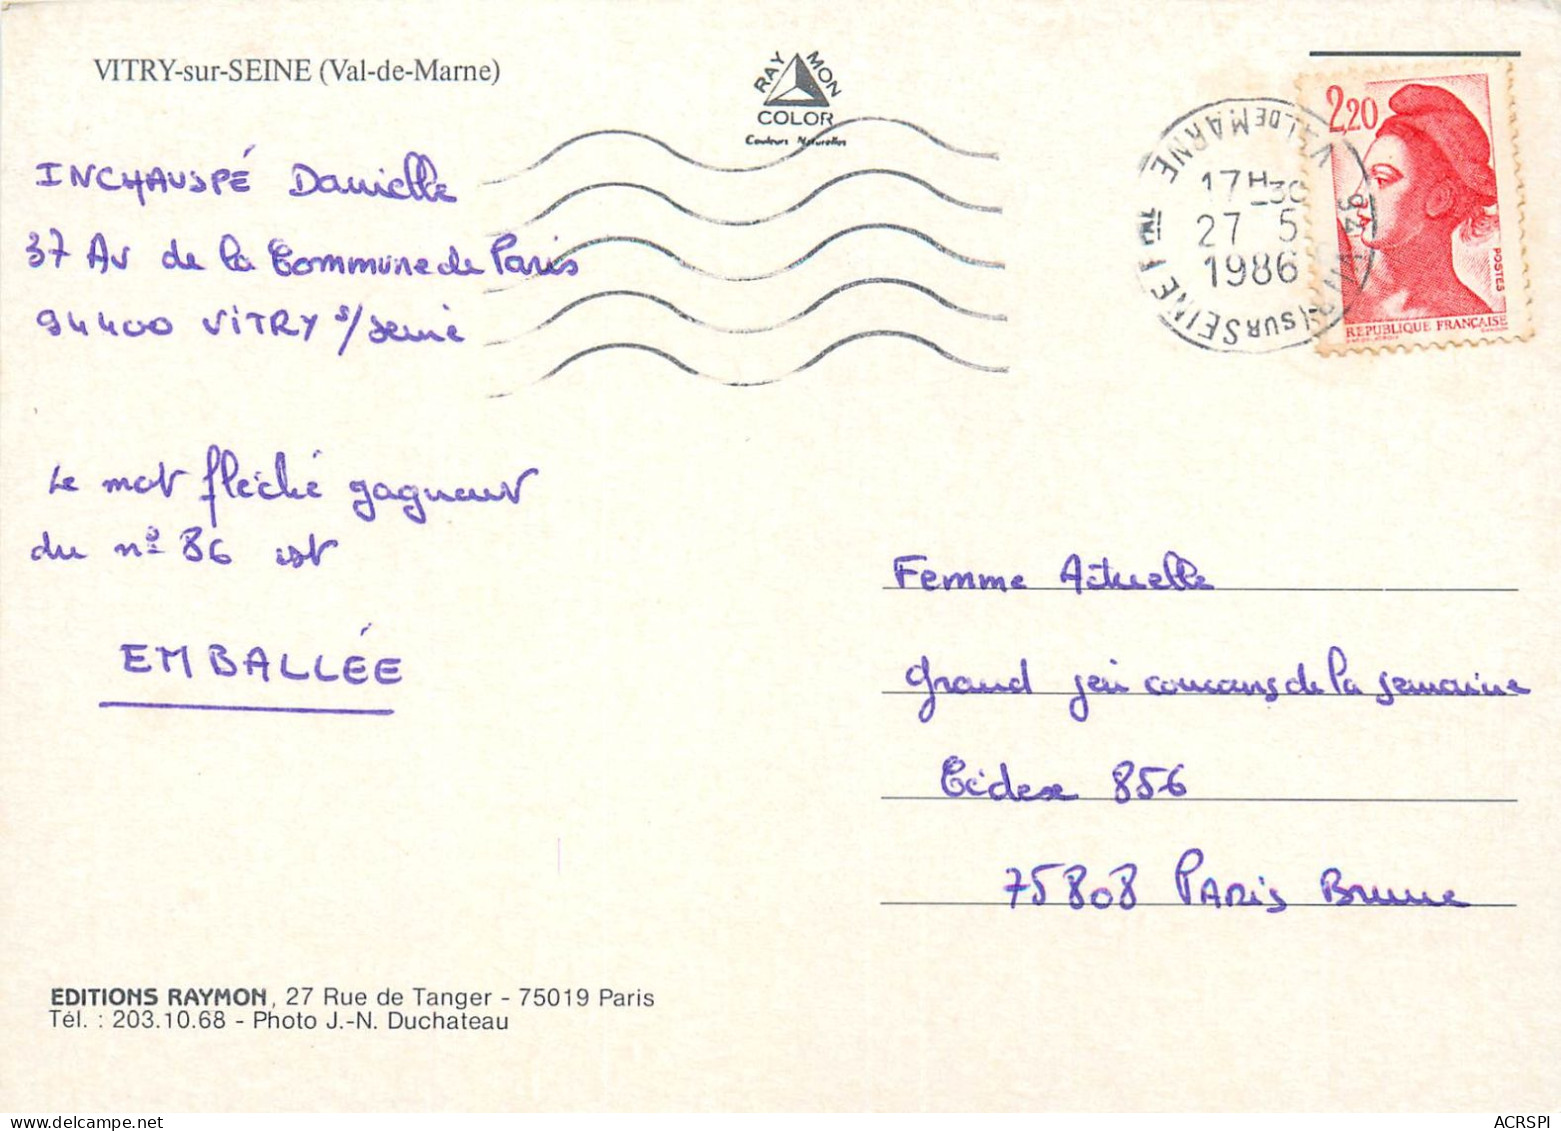 VITRY-sur-SEINE (Val-de-Marne)
RAYMON
COLOR
Couleurs Naturelles
INCHAUSPÉ Danielle
37 Av de la Commune de Paris
94400 VITRY s/seine
Le mot fléché gagneur
du nº 86 est
EMBALLÉE
17H30
27 5
1986
VAL DE MARNE
2,20
POSTES
REPUBLIQUE FRANÇAISE
Femme Actuelle
Grand jeu concours de la semaine
Cedex 856
75808 PARIS Brune
EDITIONS RAYMON, 27 Rue de Tanger - 75019 Paris
Tél. : 203.10.68 - Photo J.-N. Duchateau
delcampe.net
ACRSPI